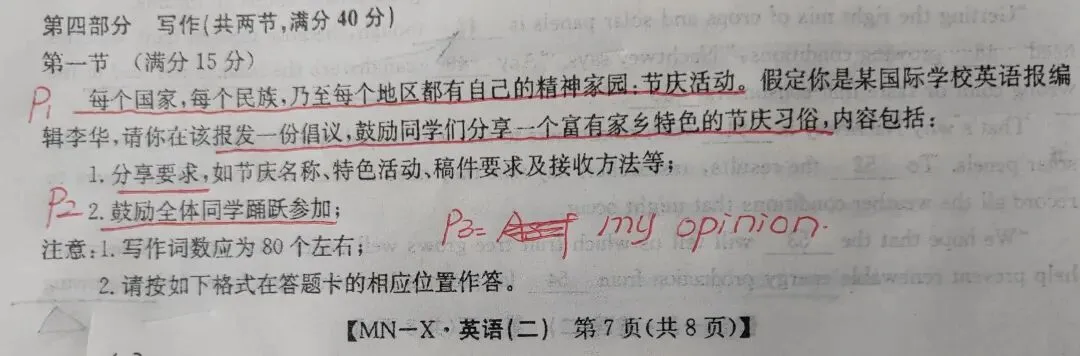 第四部分 写作(共两节,满分 40 分)
第一节 (满分 15 分)
P1 每个国家,每个民族,乃至每个地区都有自己的精神家园:节庆活动。假定你是某国际学校英语报编
辑李华,请你在该报发一份倡议,鼓励同学们分享一个富有家乡特色的节庆习俗,内容包括:
1. 分享要求,如节庆名称、特色活动、稿件要求及接收方法等;
P2 2. 鼓励全体同学踊跃参加;
P3= my opinion.
注意:1. 写作词数应为 80 个左右;
2. 请按如下格式在答题卡的相应位置作答。
【MN-X·英语(二) 第 7 页(共 8 页)】